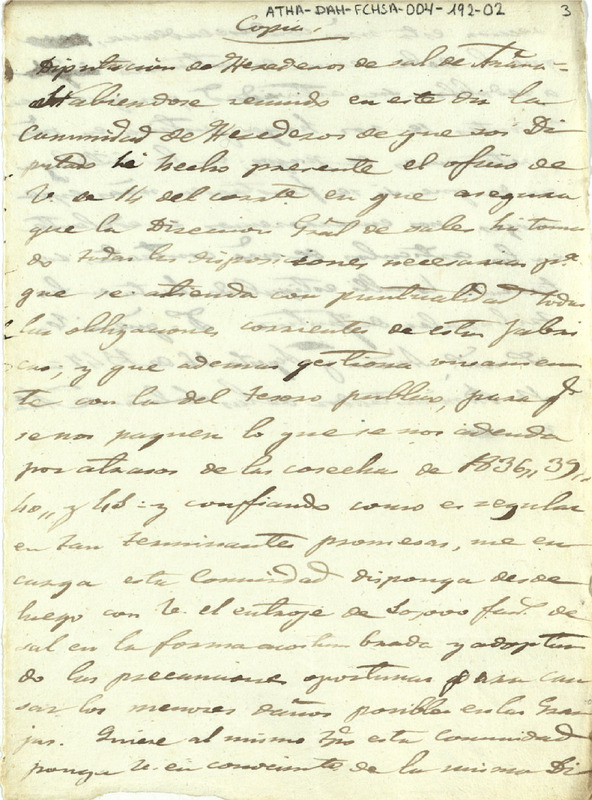 ATHA-DAH-FCHSA-004-192-02
3
Copia,
Diputacion de Herederos de sal de Añana =
Habiendose reunido en este dia la
Comunidad de Herederos de que soi Di
putado he hecho presente el oficio de
V. de 14 del corrte. en que asegura
que la Direccion Gral de sales ha toma
do todas las disposiciones necesarias pa.
que se atienda con puntualidad todas
las obligaciones corrientes de estas fabri
cas, y que ademas gestiona vivamen
te con la del tesoro publico, para qe.
se nos paguen lo que se nos adeuda
por atrasos de las cosechas de 1836,, 39,,
40,, y 41: y confiando como es regular
en tan terminantes promesas, me en
carga esta Comunidad disponga desde
luego con V. el entroje de 10,000 fans. de
sal en la forma acostumbrada y adoptan
do las precauciones oportunas para cau
sar los menores daños posibles en las Gran
jas. Quiere al mismo tpo. esta comunidad
ponga V. en conocimte. de la misma Di